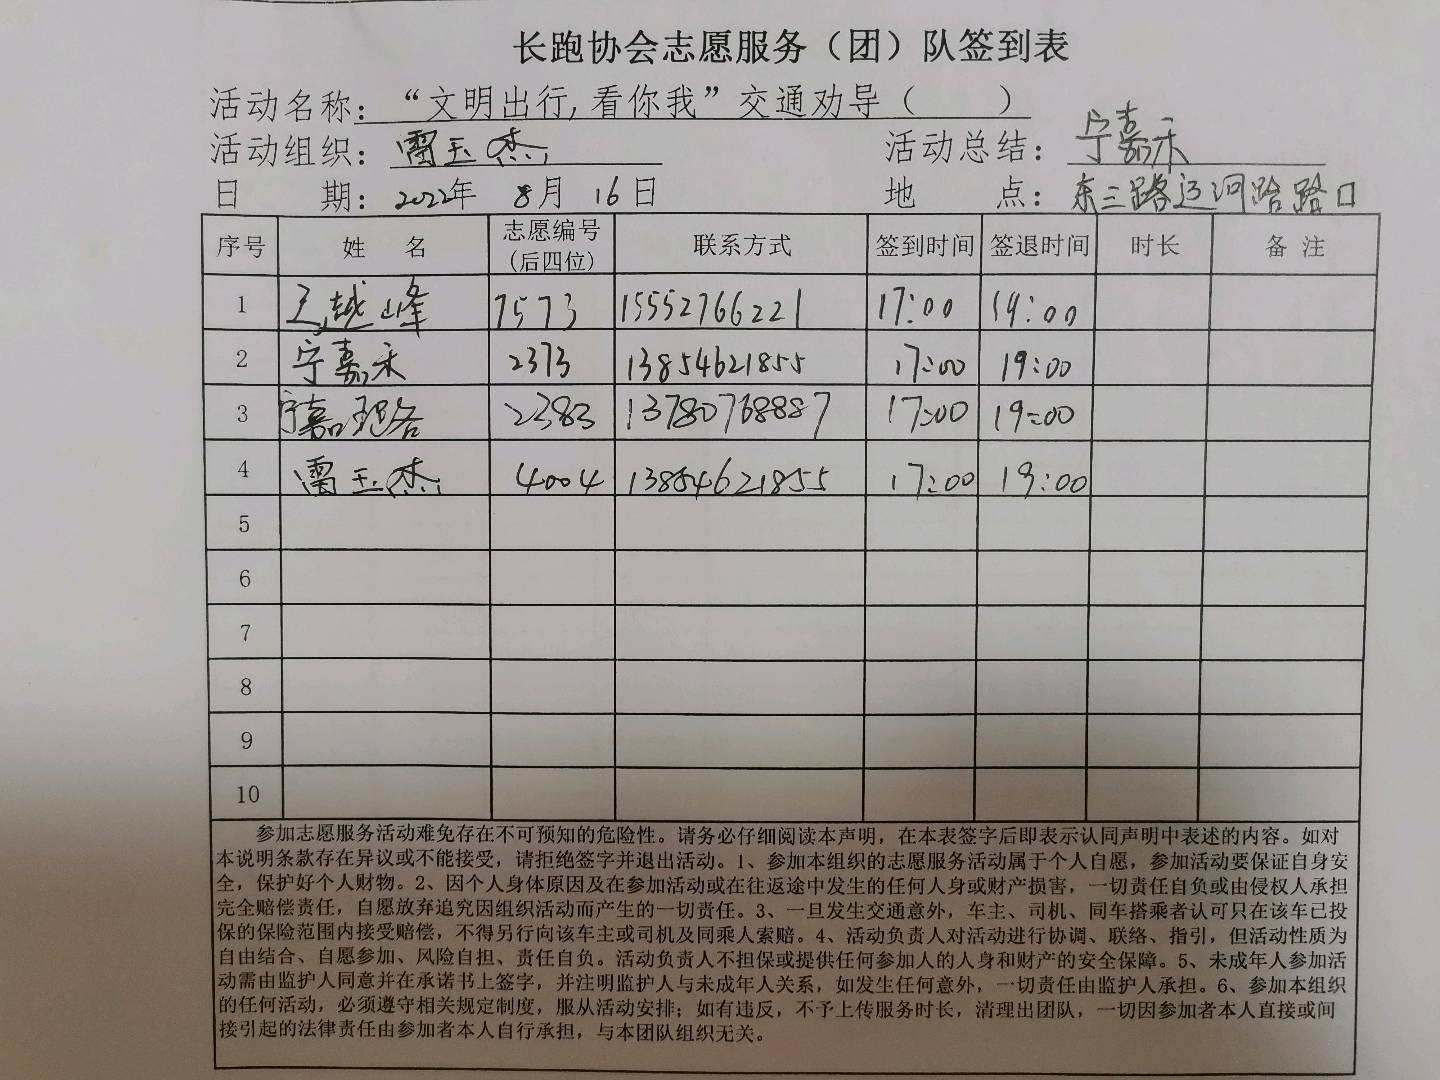 长跑协会志愿服务（团）队签到表
活动名称：“文明出行,看你我”交通劝导（ ）
活动组织：雷玉杰 活动总结：宁嘉禾
日 期：2022年 8月 16日 地 点：东三路运河路路口
序号 姓 名 志愿编号（后四位） 联系方式 签到时间 签退时间 时长 备 注
1 王越峰 7573 15552766221 17:00 19:00
2 宁嘉禾 2373 13854621855 17:00 19:00
3 宁嘉 2383 13780768887 17:00 19:00
4 雷玉杰 4004 13854621855 17:00 19:00
5
6
7
8
9
10
参加志愿服务活动难免存在不可预知的危险性。请务必仔细阅读本声明，在本表签字后即表示认同声明中表述的内容。如对
本说明条款存在异议或不能接受，请拒绝签字并退出活动。1、参加本组织的志愿服务活动属于个人自愿，参加活动要保证自身安
全，保护好个人财物。2、因个人身体原因及在参加活动或在往返途中发生的任何人身或财产损害，一切责任自负或由侵权人承担
完全赔偿责任，自愿放弃追究因组织活动而产生的一切责任。3、一旦发生交通意外，车主、司机、同车搭乘者认可只在该车已投
保的保险范围内接受赔偿，不得另行向该车主或司机及同乘人索赔。4、活动负责人对活动进行协调、联络、指引，但活动性质为
自由结合、自愿参加、风险自担、责任自负。活动负责人不担保或提供任何参加人的人身和财产的安全保障。5、未成年人参加活
动需由监护人同意并在承诺书上签字，并注明监护人与未成年人关系，如发生任何意外，一切责任由监护人承担。6、参加本组织
的任何活动，必须遵守相关规定制度，服从活动安排；如有违反，不予上传服务时长，清理出团队，一切因参加者本人直接或间
接引起的法律责任由参加者本人自行承担，与本团队组织无关。